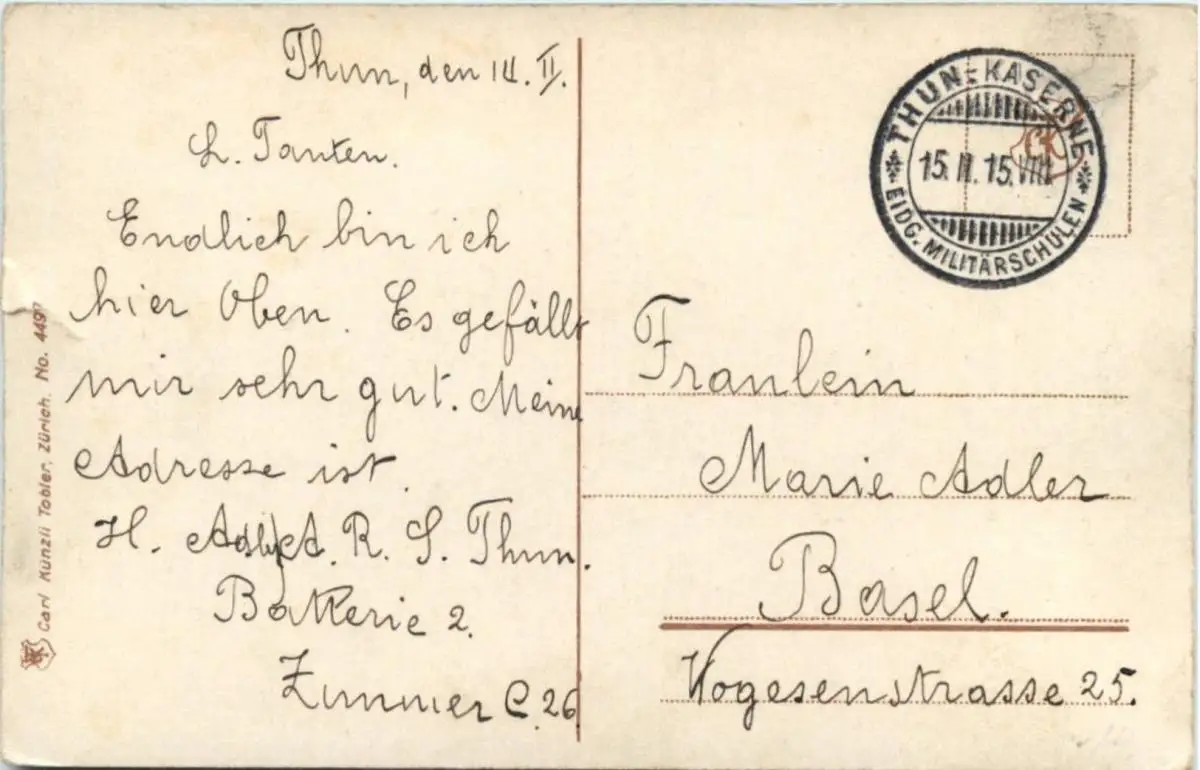 Thun, den 14. II.
L. Tanten.
Endlich bin ich
hier Oben. Es gefällt
mir sehr gut. Meine
Adresse ist.
H. A. R. S. Thun.
Batterie 2.
Zimmer C. 26
Carl Künzli Tobler, Zürich. No. 449
THUN-KASERNE
15. II. 15. VIII
EIDG. MILITÄRSCHULEN
CKT
Fraulein
Marie Adler
Basel.
Vogesenstrasse 25.